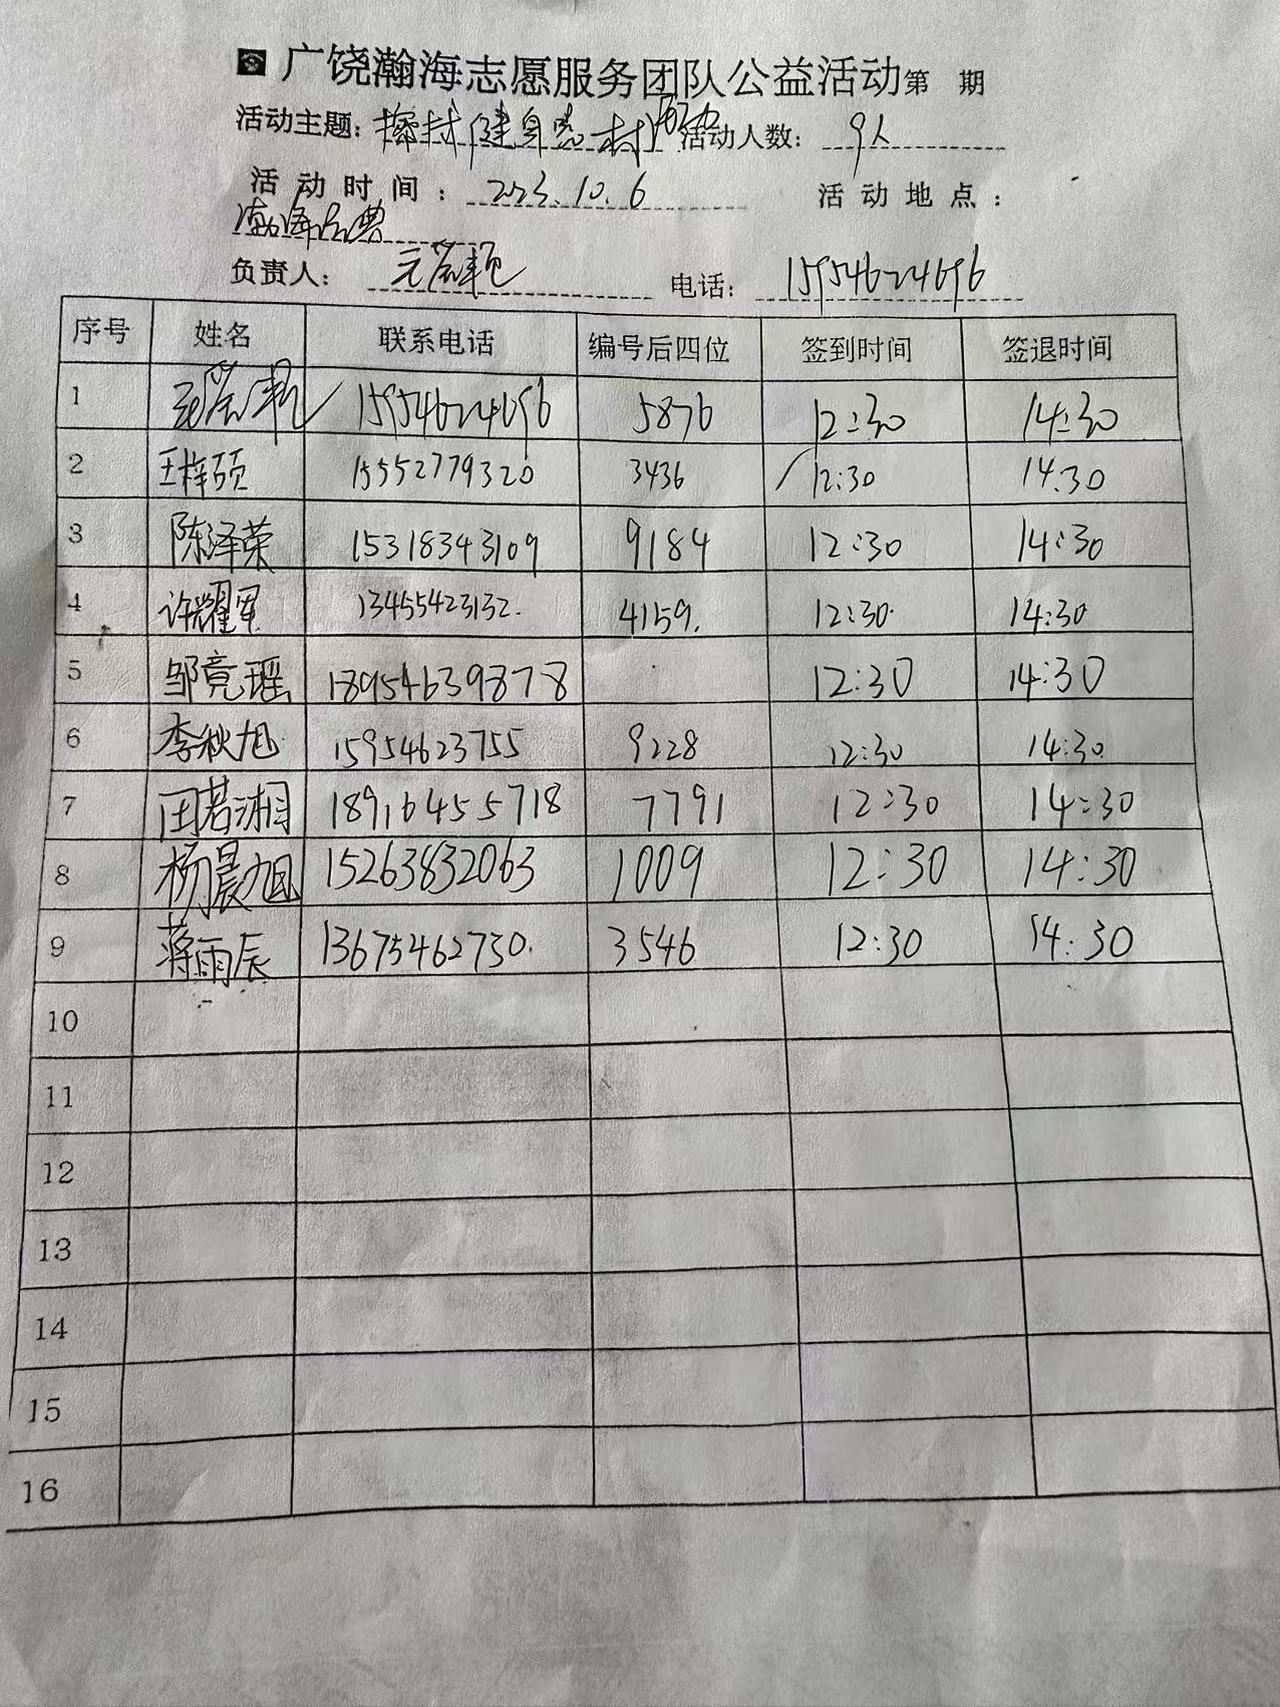 广饶瀚海志愿服务团队公益活动第 期
活动主题: 擦 健身器材活动 活动人数: 9人
活 动 时 间 : 2023.10.6 活 动 地 点 :
渤海古典
负责人: 电话: 15954624696
序号 姓名 联系电话 编号后四位 签到时间 签退时间
1 15954624696 5876 12:30 14:30
2 王梓硕 15552779320 3436 12:30 14:30
3 陈泽荣 15318343109 9184 12:30 14:30
4 许耀军 13455423132. 4159. 12:30 14:30
5 邹竟瑶 18954639878 12:30 14:30
6 李秋旭 15954623755 9228 12:30 14:30
7 田若湘 18916455718 7791 12:30 14:30
8 杨晨旭 15263832063 1009 12:30 14:30
9 蒋雨辰 13675462730. 3546 12:30 14:30
10
11
12
13
14
15
16